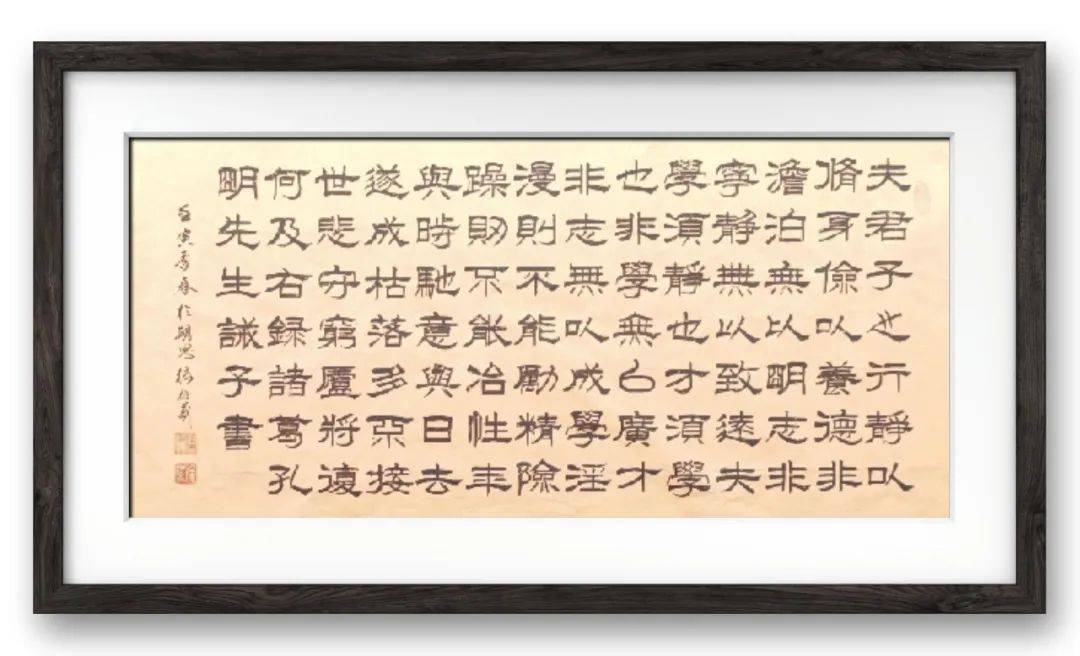 夫君子之行靜以
脩身儉以養德非
澹泊無以明志非
寧靜無以致遠夫
學須靜也才須學
也非學無以廣才
非志無以成學淫
漫則不能勵精險
躁則不能冶性年
與時馳意與日去
遂成枯落多不接
世悲守窮廬將復
何及右錄諸葛孔
明先生誡子書
壬寅季春於